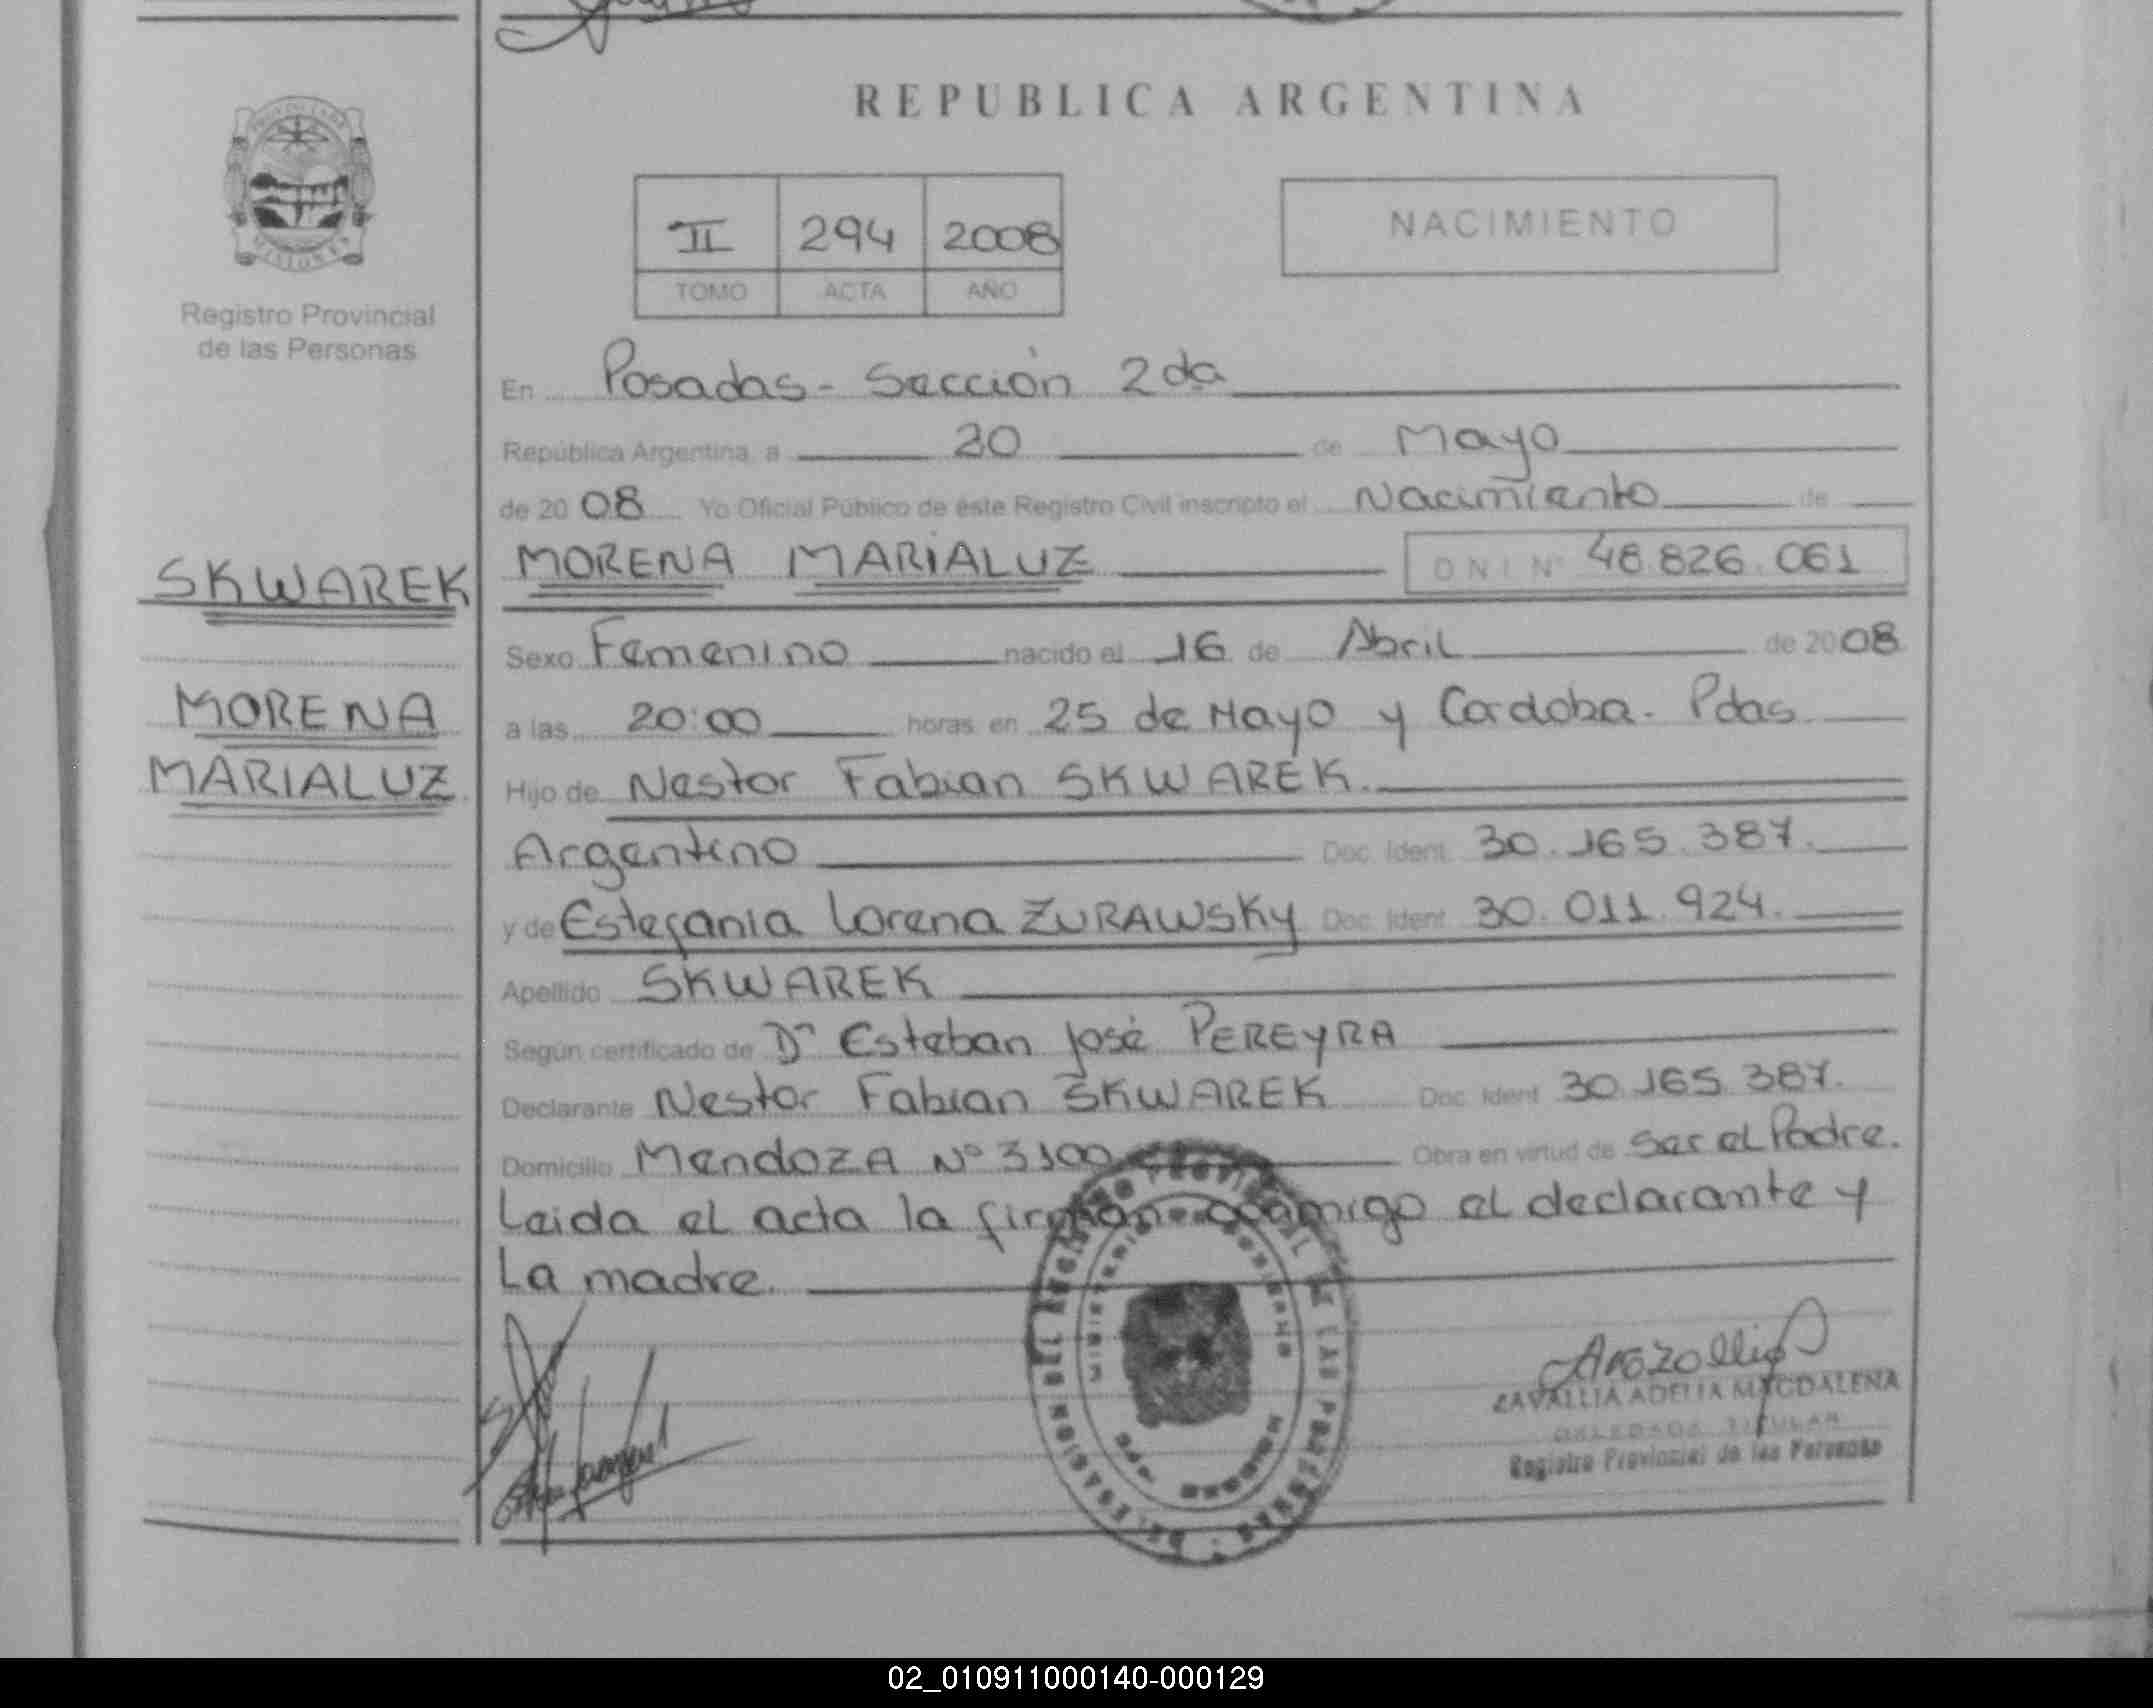 REPUBLICA ARGENTINA
PROVINCIA DE
MISIONES
Registro Provincial
de las Personas
II 294 2008
TOMO ACTA AÑO
NACIMIENTO
En Posadas - Sección 2da
República Argentina, a 30 de Mayo
de 2008 Yo Oficial Público de éste Registro Civil inscripto el Nacimiento de
SKWAREK
MORENA MARIALUZ D N I Nº 48.826.061
Sexo Femenino nacido el 16 de Abril de 2008
MORENA
MARIALUZ
a las 20:00 horas en 25 de Mayo y Cordoba. Pdas
Hijo de Nestor Fabian SKWAREK.
Argentino Doc. Ident. 30.165.387.
y de Estefania Lorena ZURAWSKY Doc. Ident. 30.011.924.
Apellido SKWAREK
Según certificado de Dr Esteban José PEREYRA
Declarante Nestor Fabian SKWAREK Doc. Ident 30.165.387.
Domicilio MendozA Nº 3100 Obra en virtud de ser el Padre.
Leida el acta la firman conmigo el declarante y
La madre.
ZAVALLIA ADELIA MAGDALENA
DELEGADA TITULAR
Registro Provincial de las Personas
02_010911000140-000129